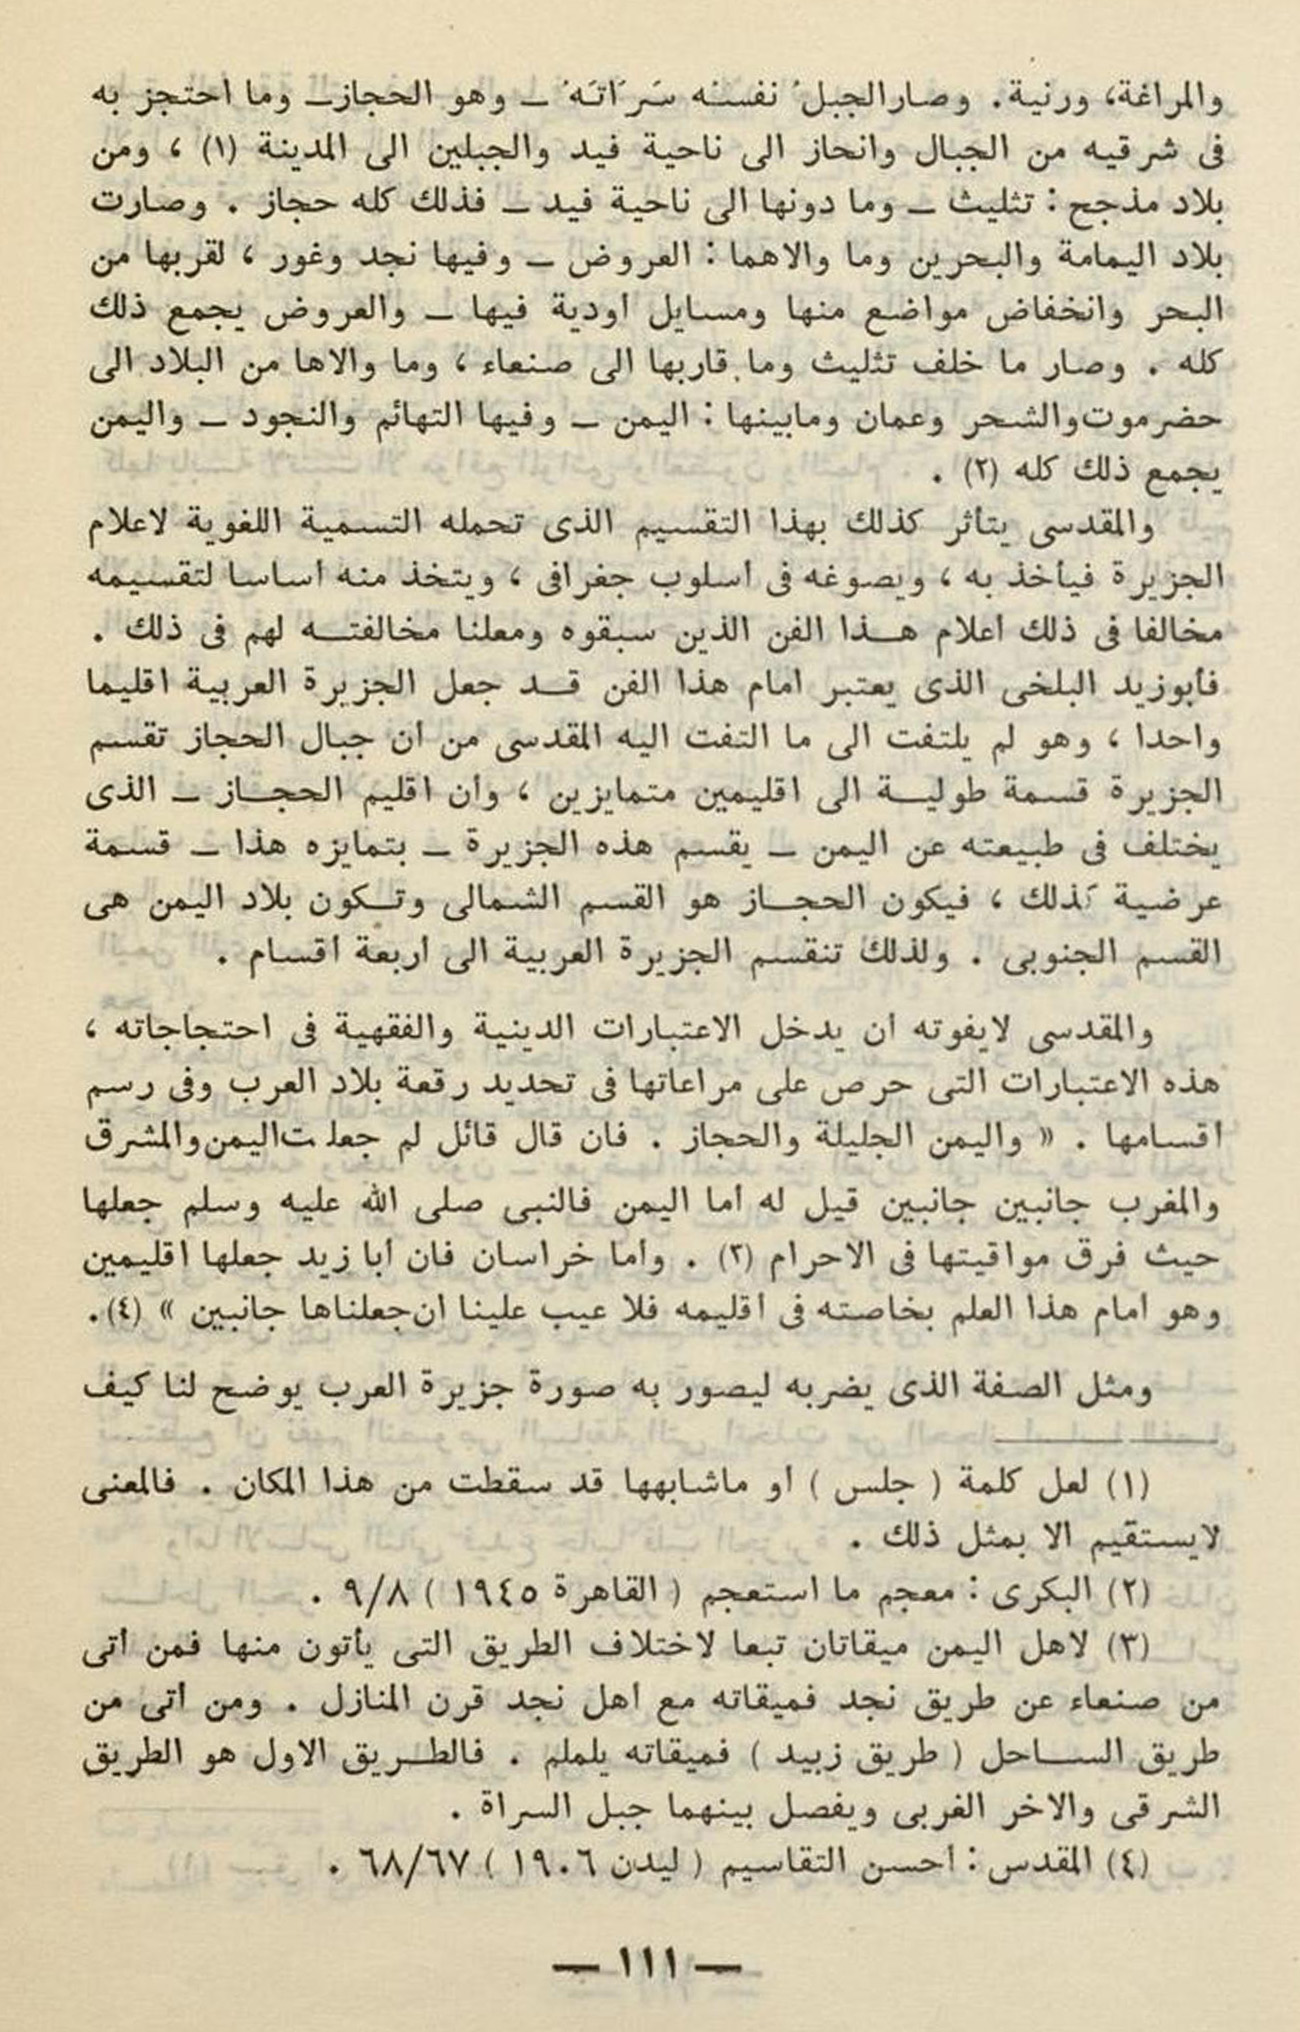 والمراغة، ورنية. وصارالجبلُ نفسُه سَرَاتَهُ ــ وهو الحجازــ وما احتجز به
فى شرقيه من الجبال وانحاز الى ناحية فيد والجبلين الى المدينة (١) ، ومن
بلاد مذجح : تثليث ــ وما دونها الى ناحية فيد ــ فذلك كله حجاز . وصارت
بلاد اليمامة والبحرين وما والاهما : العروض ــ وفيها نجد وغور ، لقربها من
البحر وانخفاض مواضع منها ومسايل أودية فيها ــ والعروض يجمع ذلك
كله . وصار ما خلف تثليث وما قاربها الى صنعاء ، وما والاها من البلاد الى
حضرموت والشحر وعمان ومابينها : اليمن ــ وفيها التهائم والنجود ــ واليمن
يجمع ذلك كله (٢) .
والمقدسى يتأثر كذلك بهذا التقسيم الذى تحمله التسمية اللغوية لاعلام
الجزيرة فيأخذ به ، ويصوغه فى أسلوب جغرافى ، ويتخذ منه أساسا لتقسيمه
مخالفا فى ذلك أعلام هــذا الفن الذين سبقوه ومعلنا مخالفتــه لهم فى ذلك .
فأبوزيد البلخى الذى يعتبر امام هذا الفن قــد جعل الجزيرة العربية اقليما
واحدا ، وهو لم يلتفت الى ما التفت اليه المقدسى من أن جبال الحجاز تقسم
الجزيرة قسمة طوليــة الى اقليمين متمايزين ، وأن اقليم الحجــاز ــ الذى
يختلف فى طبيعته عن اليمن ــ يقسم هذه الجزيرة ــ بتمايزه هذا ــ قسمة
عرضية كذلك ، فيكون الحجــاز هو القسم الشمالى وتــكون بلاد اليمن هى
القسم الجنوبى . ولذلك تنقسم الجزيرة العربية الى أربعة أقسام .
والمقدسى لايفوته أن يدخل الاعتبارات الدينية والفقهية فى احتجاجاته ،
هذه الاعتبارات التى حرص على مراعاتها فى تحديد رقعة بلاد العرب وفى رسم
أقسامها . « واليمن الجليلة والحجاز . فان قال قائل لم جعلت اليمن والمشرق
والمغرب جانبين جانبين قيل له أما اليمن فالنبى صلى الله عليه وسلم جعلها
حيث فرق مواقيتها فى الاحرام (٣) . وأما خراسان فان أبا زيد جعلها اقليمين
وهو امام هذا العلم بخاصته فى اقليمه فلا عيب علينا أن جعلناها جانبين » (٤).
ومثل الصفة الذى يضربه ليصور به صورة جزيرة العرب يوضح لنا كيف
(١) لعل كلمة ( جلس ) أو ماشابهها قد سقطت من هذا المكان . فالمعنى
لايستقيم الا بمثل ذلك .
(٢) البكرى : معجم ما استعجم ( القاهرة ١٩٤٥ ) ٩/٨ .
(٣) لاهل اليمن ميقاتان تبعا لاختلاف الطريق التى يأتون منها فمن أتى
من صنعاء عن طريق نجد فميقاته مع أهل نجد قرن المنازل . ومن أتى من
طريق الســاحل ( طريق زبيد ) فميقاته يلملم . فالطــريق الاول هو الطريق
الشرقى والاخر الغربى ويفصل بينهما جبل السراة .
(٤) المقدس : أحسن التقاسيم ( ليدن ١٩٠٦ ) ٦٨/٦٧ .
— ١١١ —